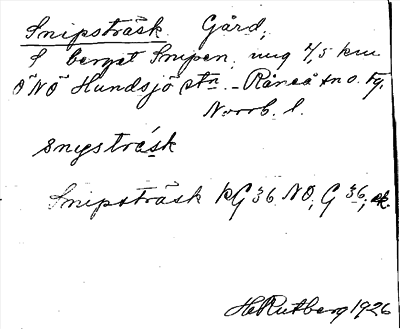 Snipsträsk Gård,
S berget Snipen, ung 7,5 km
ÖNÖ Hundsjö stn. – Råneå sn o. tg.
Norrb. l.
snysträsk
Snipsträsk KG 36 NO, G 36,
H. Rutberg 1926